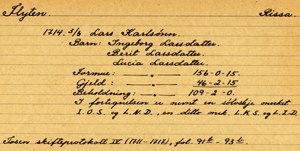 Flyten. Rissa.
1714. 2/8 Lars Karlsønn.
Barn: Ingeborg Larsdatter.
Berit Larsdatter.
Lucia Larsdatter.
Formue: 156-0-15.
Gjeld: 46-2-15.
Beholdning: 109-2-0.
I fortegnelsen er nevnt en sølvskje merket
I.O.S. og L.N.D., en ditto med L.K.S. og L.I.D.
Fosen skifteprotokoll IV (1711-1717), fol. 91b - 93a.